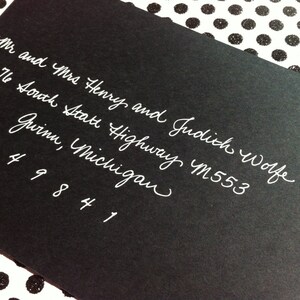 Mr and Mrs Henry and Judith Wolfe
76 South State Highway M553
Gwinn, Michigan
49841